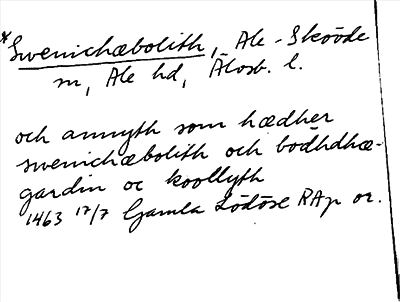 *Swenichæbolith, Ale-Skövde
sn, Ale hd, Älvsb. l.
och annyth som hædher
swenichæbolith och bodhdhæ-
gardin oc koollyth
1463 17/7 Gamla Lödöse RAp or.